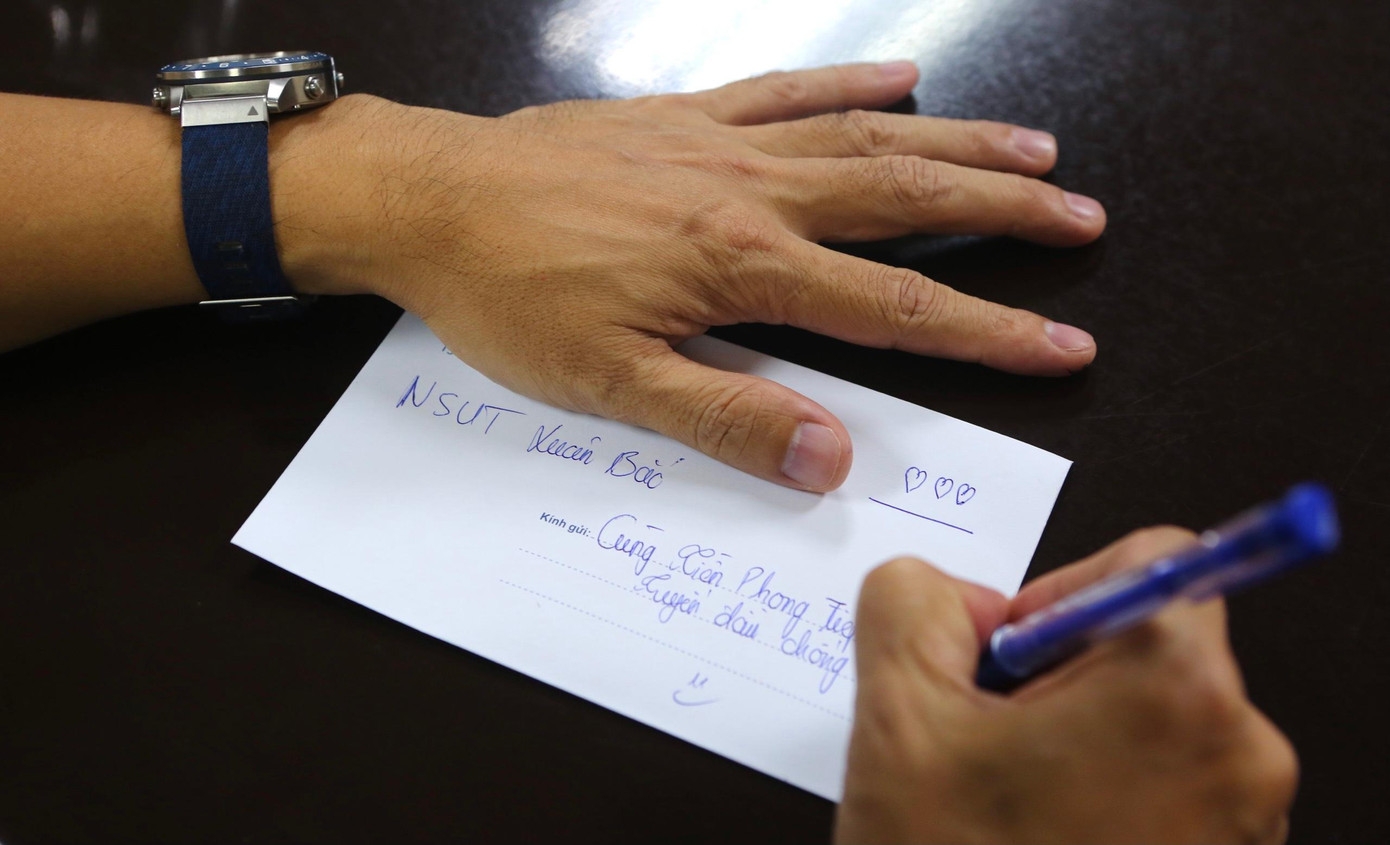 NSUT Xuân Bắc
Kính gửi: Cùng Tiền Phong Tiếp
Tuyến đầu chống